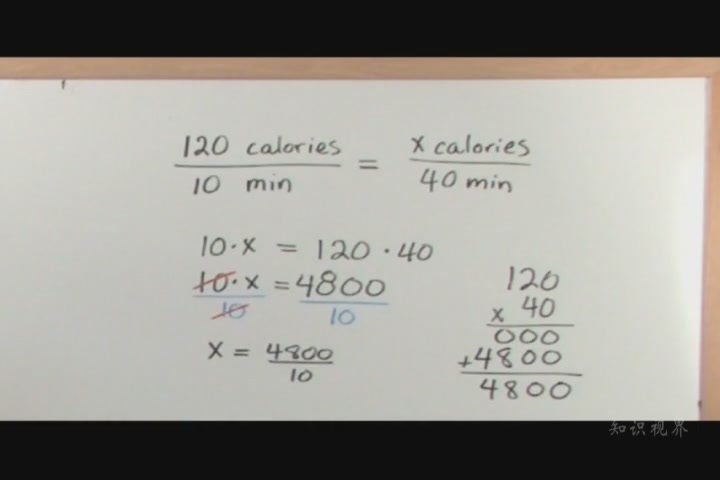 120 calories / 10 min = x calories / 40 min
10·x = 120·40
10·x / 10 = 4800 / 10
x = 4800 / 10
120
x 40
000
+4800
4800
知识视界